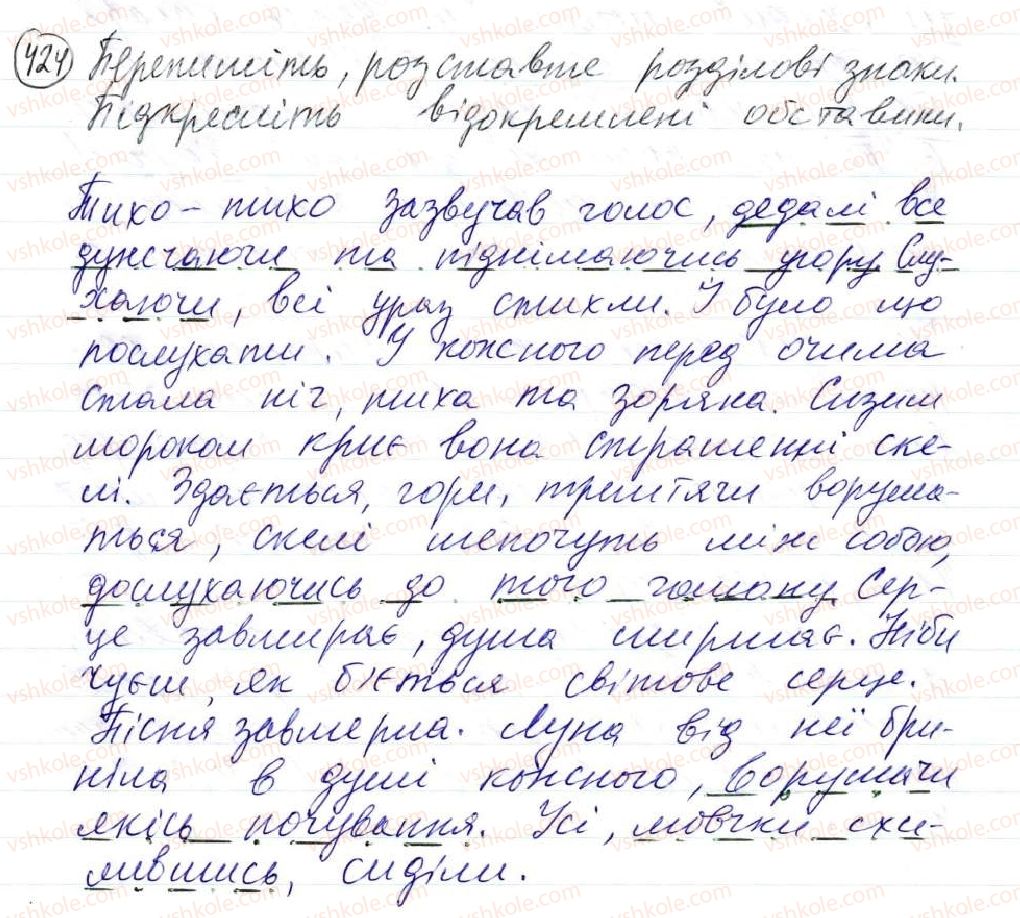 424 Перепишіть, розставте розділові знаки.
Підкресліть відокремлені обставини.
Тихо-тихо зазвучав голос, дедалі все
дужчаючи та піднімаючись угору. Слу-
хаючи, всі ураз стихли. І було що
послухати. У кожного перед очима
стала ніч, тиха та зоряна. Сизим
мороком криє вона страшенні ске-
лі. Здається, гори, тремтячи воруша-
ться, скелі шепочуть між собою,
дослухаючись до того гомону. Сер-
це завмирає, душа ширшає. Ніби
чуєш, як б'ється світове серце.
Пісня завмерла. Луна від неї бри-
ніла в душі кожного, ворушачи
якісь почування. Усі, мовчки схи-
лившись, сиділи.